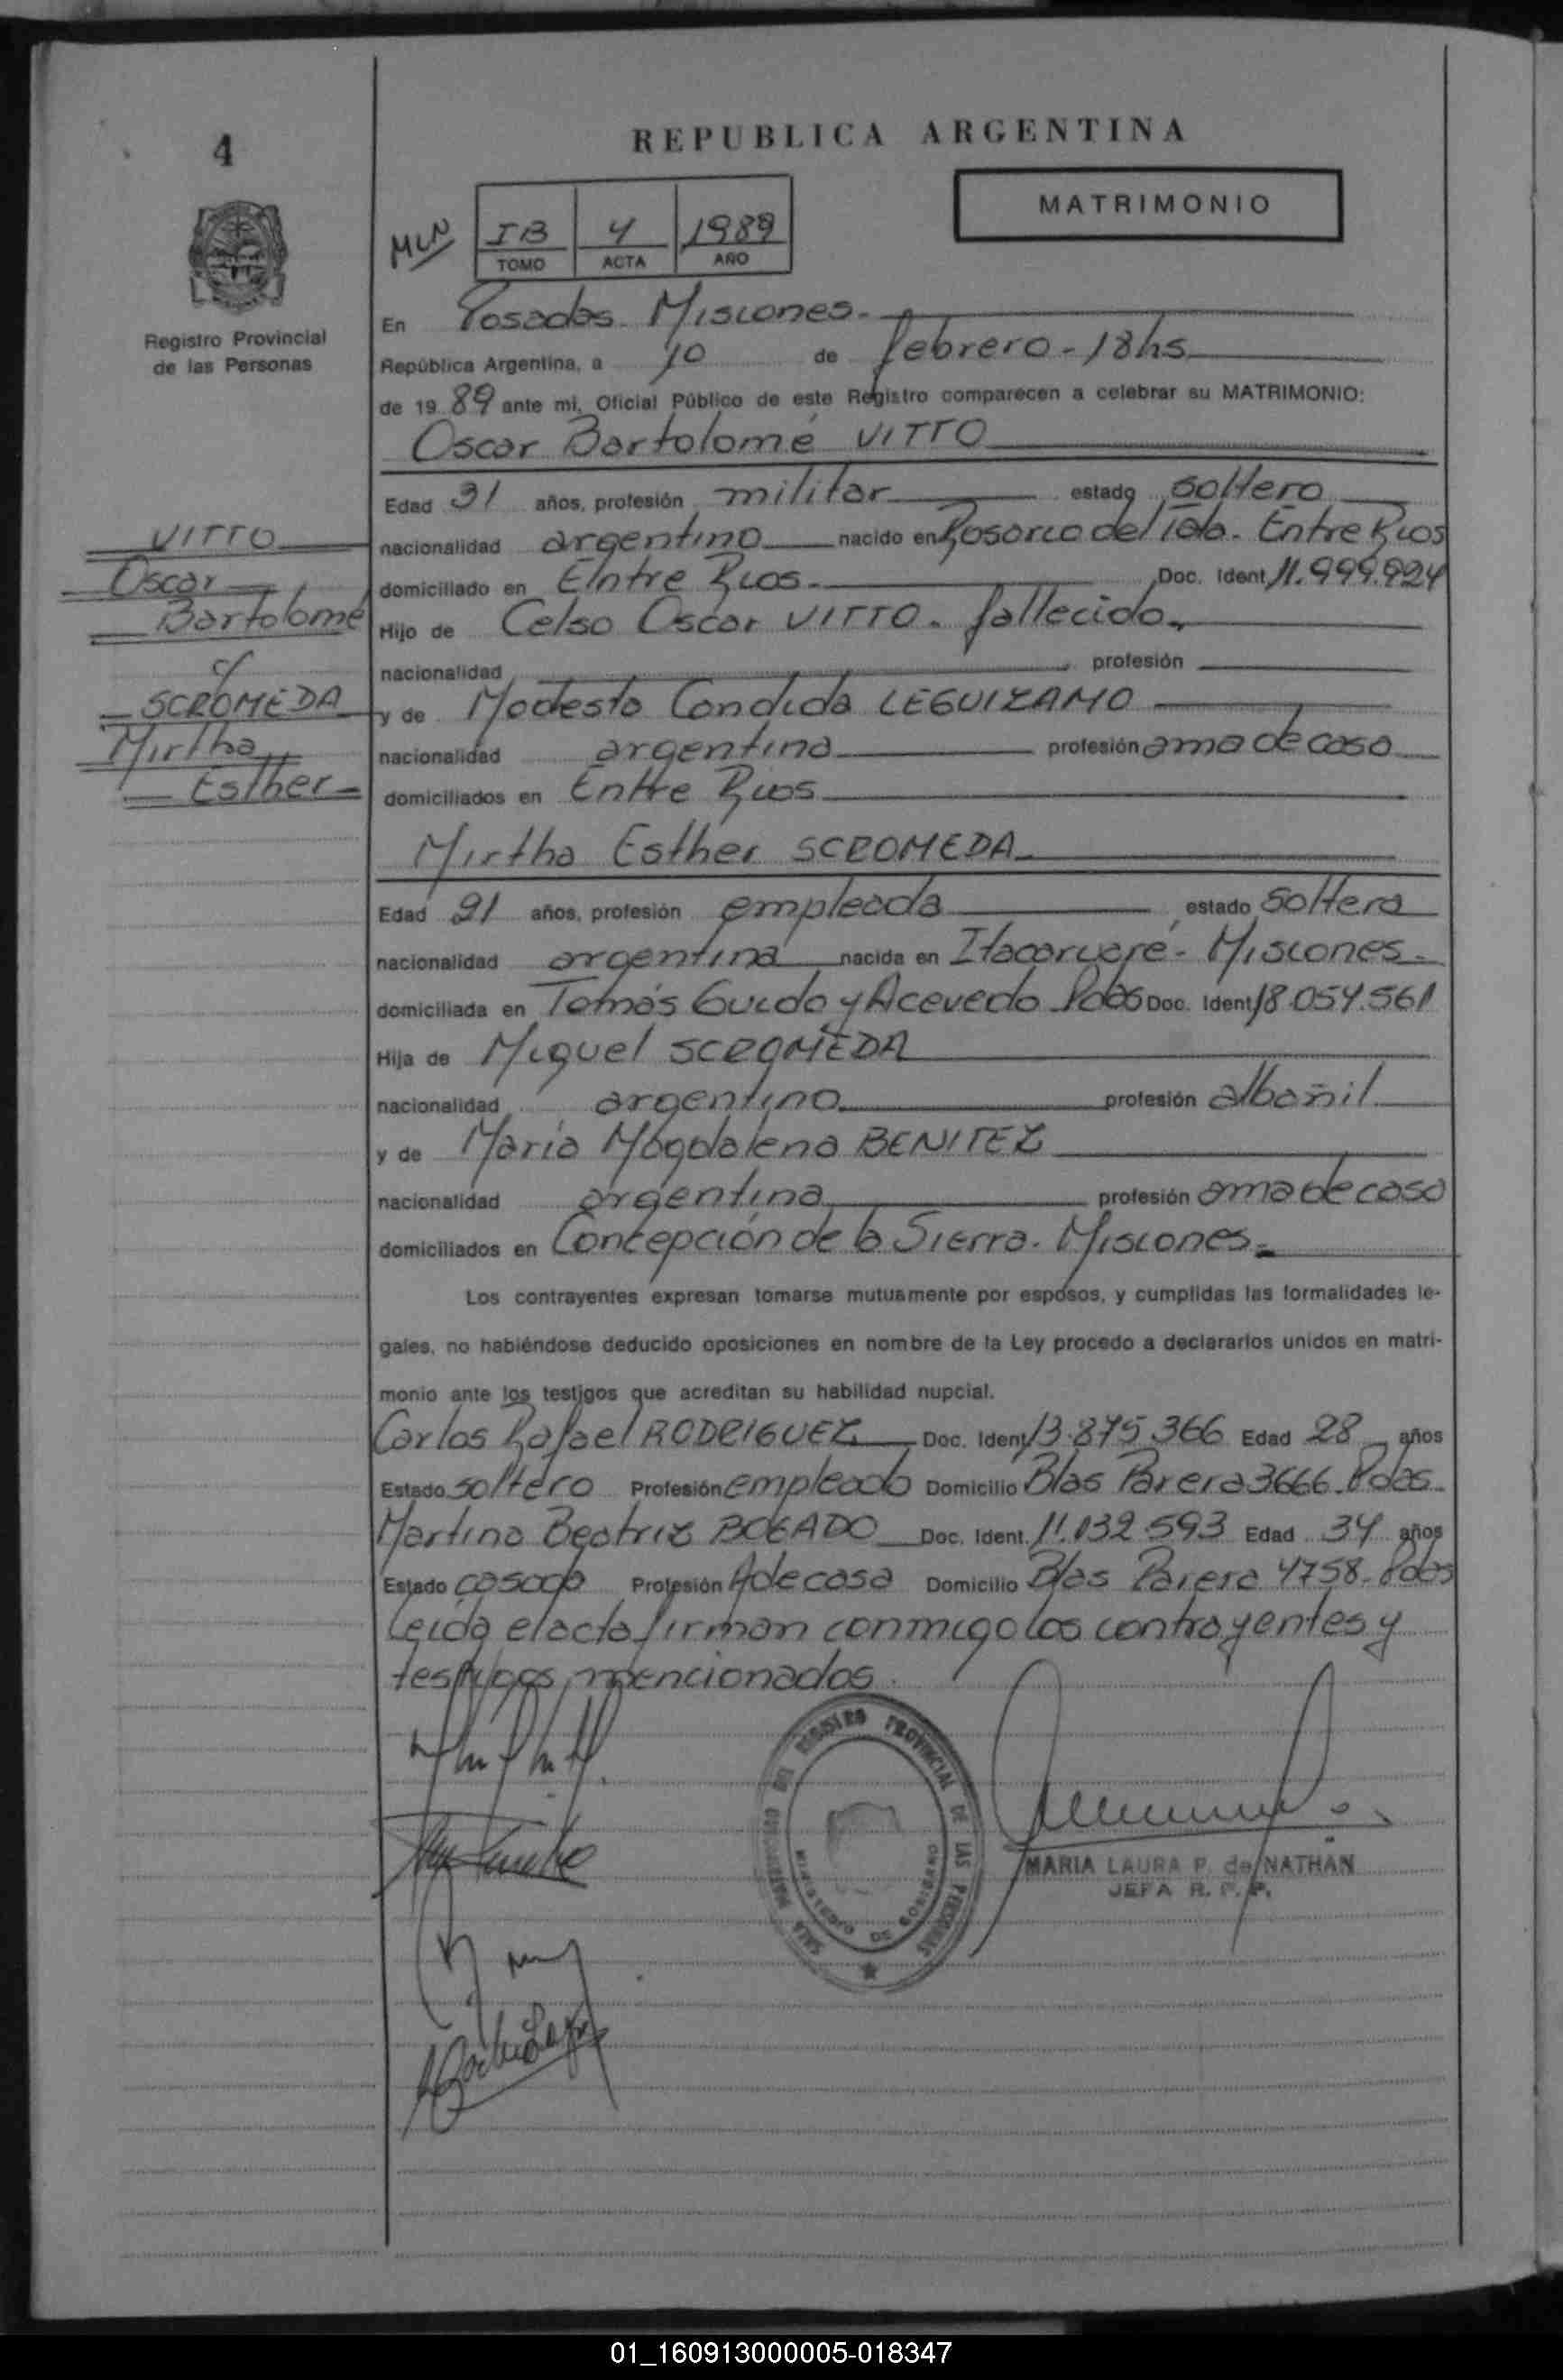 4
REPUBLICA ARGENTINA
MATRIMONIO
MLN
IB 4 1989
TOMO ACTA AÑO
Registro Provincial
de las Personas
En Posadas Misiones.-
República Argentina, a 10 de febrero - 18hs
de 19 89 ante mi, Oficial Público de este Registro comparecen a celebrar su MATRIMONIO:
Oscar Bartolomé VITTO
Edad 31 años, profesión militar estado soltero
VITTO
Oscar
Bartolomé
c/
SCROMEDA
Mirtha
Esther
nacionalidad argentino nacido en Rosario del Tala. Entre Rios
domiciliado en Entre Rios. Doc. Ident 11.999.924
Hijo de Celso Oscar VITTO. fallecido.
nacionalidad profesión
y de Modesta Candida LEGUIZAMO
nacionalidad argentina profesión ama de casa
domiciliados en Entre Rios
Mirtha Esther SCROMEDA
Edad 21 años, profesión empleada estado soltera
nacionalidad argentina nacida en Itacaruaré - Misiones.
domiciliada en Tomás Guido y Acevedo Pdas Doc. Ident 18.054.561
Hija de Miguel SCROMEDA
nacionalidad argentino profesión albañil
y de María Magdalena BENITEZ
nacionalidad argentina profesión ama de casa
domiciliados en Concepción de la Sierra. Misiones.
Los contrayentes expresan tomarse mutuamente por esposos, y cumplidas las formalidades le-
gales, no habiéndose deducido oposiciones en nombre de la Ley procedo a declararlos unidos en matri-
monio ante los testigos que acreditan su habilidad nupcial.
Carlos Rafael RODRIGUEZ Doc. Ident 13.875.366 Edad 28 años
Estado soltero Profesión empleado Domicilio Blas Parera 3666. Pdas.
Martina Beatriz BOGADO Doc. Ident. 11.032.593 Edad 34 años
Estado casada Profesión A de casa Domicilio Blas Parera 4758- Pdas
Leida el acta firman conmigo los contrayentes y
testigos mencionados.
REGISTRO PROVINCIAL DE LAS PERSONAS
MINISTERIO DE GOBIERNO
SALA
MARIA LAURA P. de NATHAN
JEFA R. P. P.
01_160913000005-018347